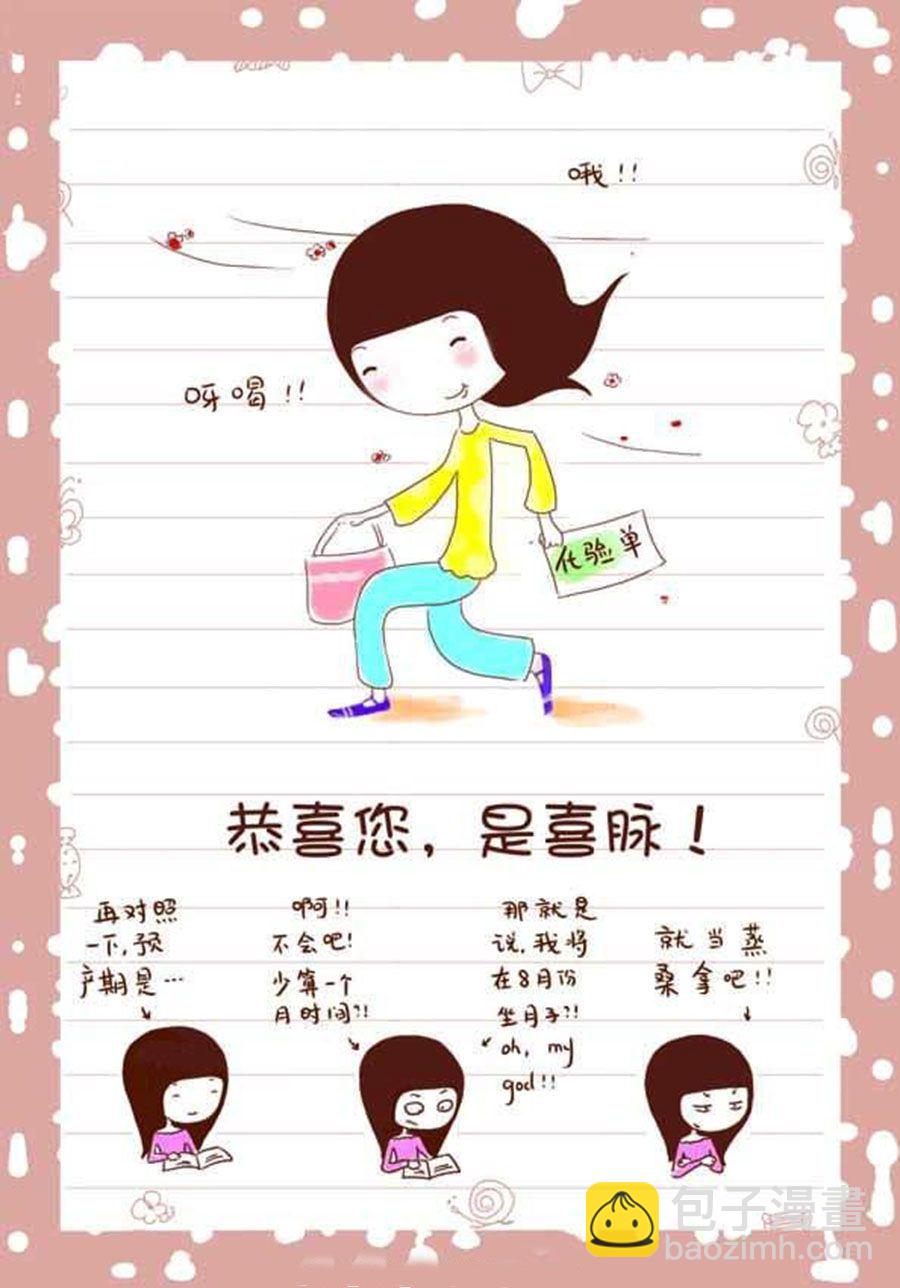 哦!!
呀喝!!
化验单
恭喜您，是喜脉！
再对照
一下，预
产期是…
啊!!
不会吧!
少算一个
月时间?!
那就是
说，我将
在8月份
坐月子?!
oh, my
god!!
就当蒸
桑拿吧!!
包子漫畫
baozimh.com